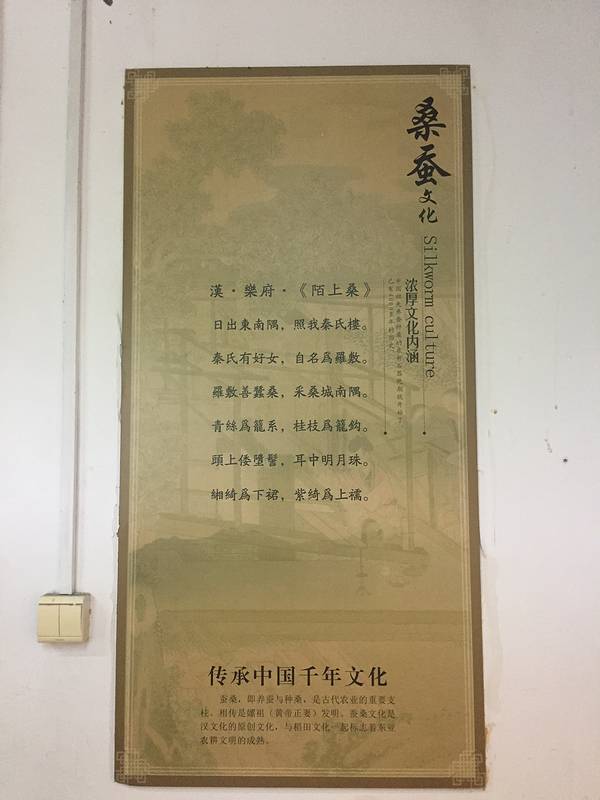 桑蚕文化
Silkworm culture
浓厚文化内涵
漢·樂府·《陌上桑》
日出東南隅，照我秦氏樓。
秦氏有好女，自名爲羅敷。
羅敷善蠶桑，采桑城南隅。
青絲爲籠系，桂枝爲籠鈎。
頭上倭墮髻，耳中明月珠。
緗綺爲下裙，紫綺爲上襦。
传承中国千年文化
蚕桑，即养蚕与种桑，是古代农业的重要支
柱。相传是嫘祖（黄帝正妻）发明。蚕桑文化是
汉文化的原创文化，与稻田文化一起标志着东亚
农耕文明的成熟。